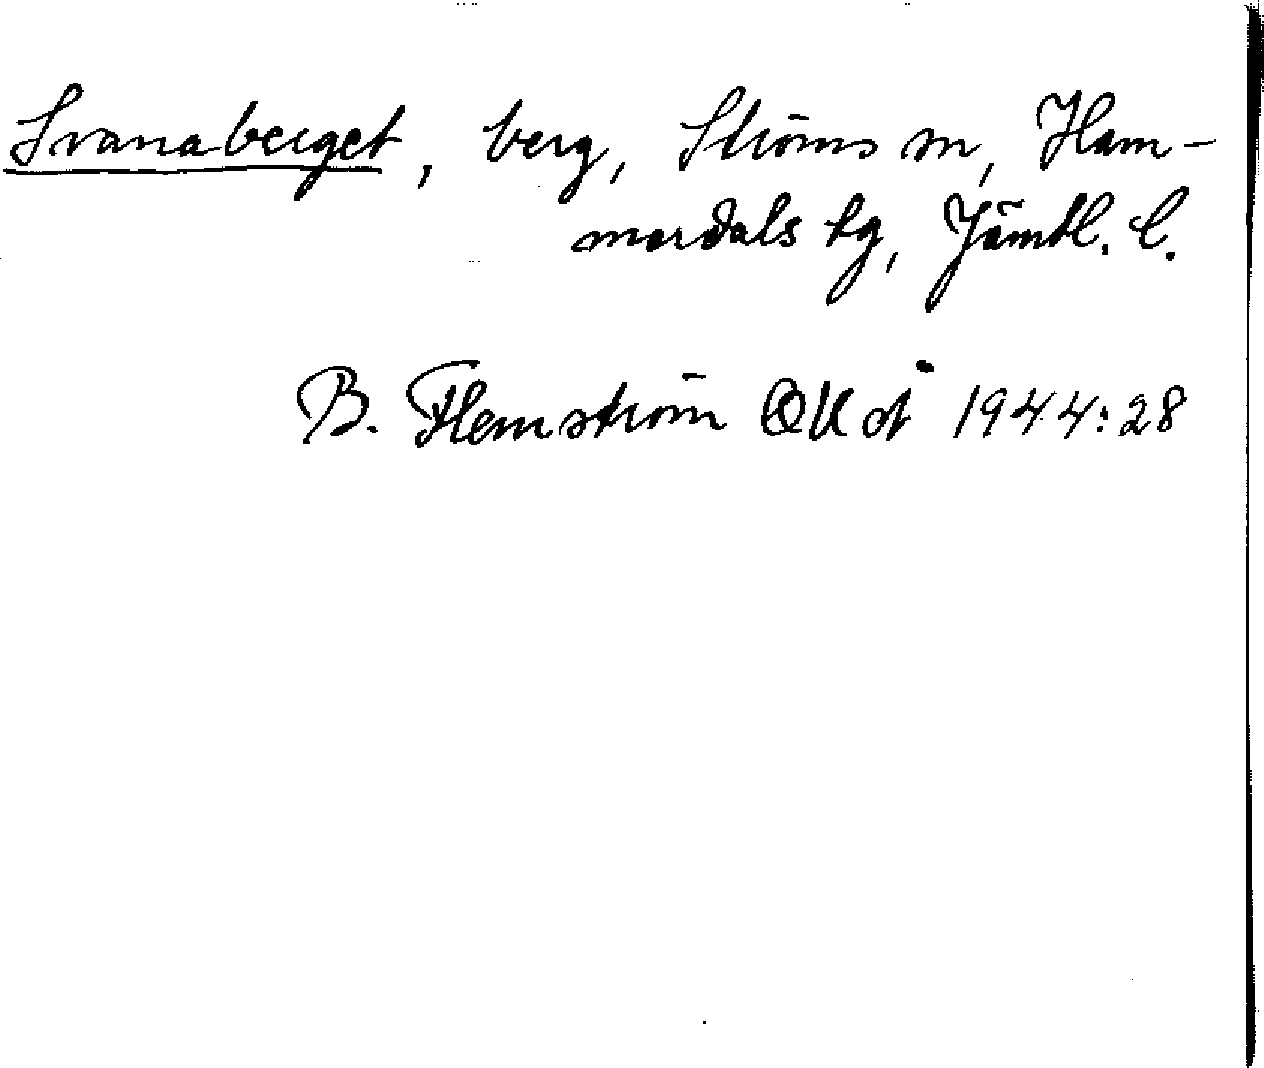 Svanaberget, berg, Ströms sn, Ham-
merdals tg, Jämtl. l.
B. Flemström OUoÅ 1944:28